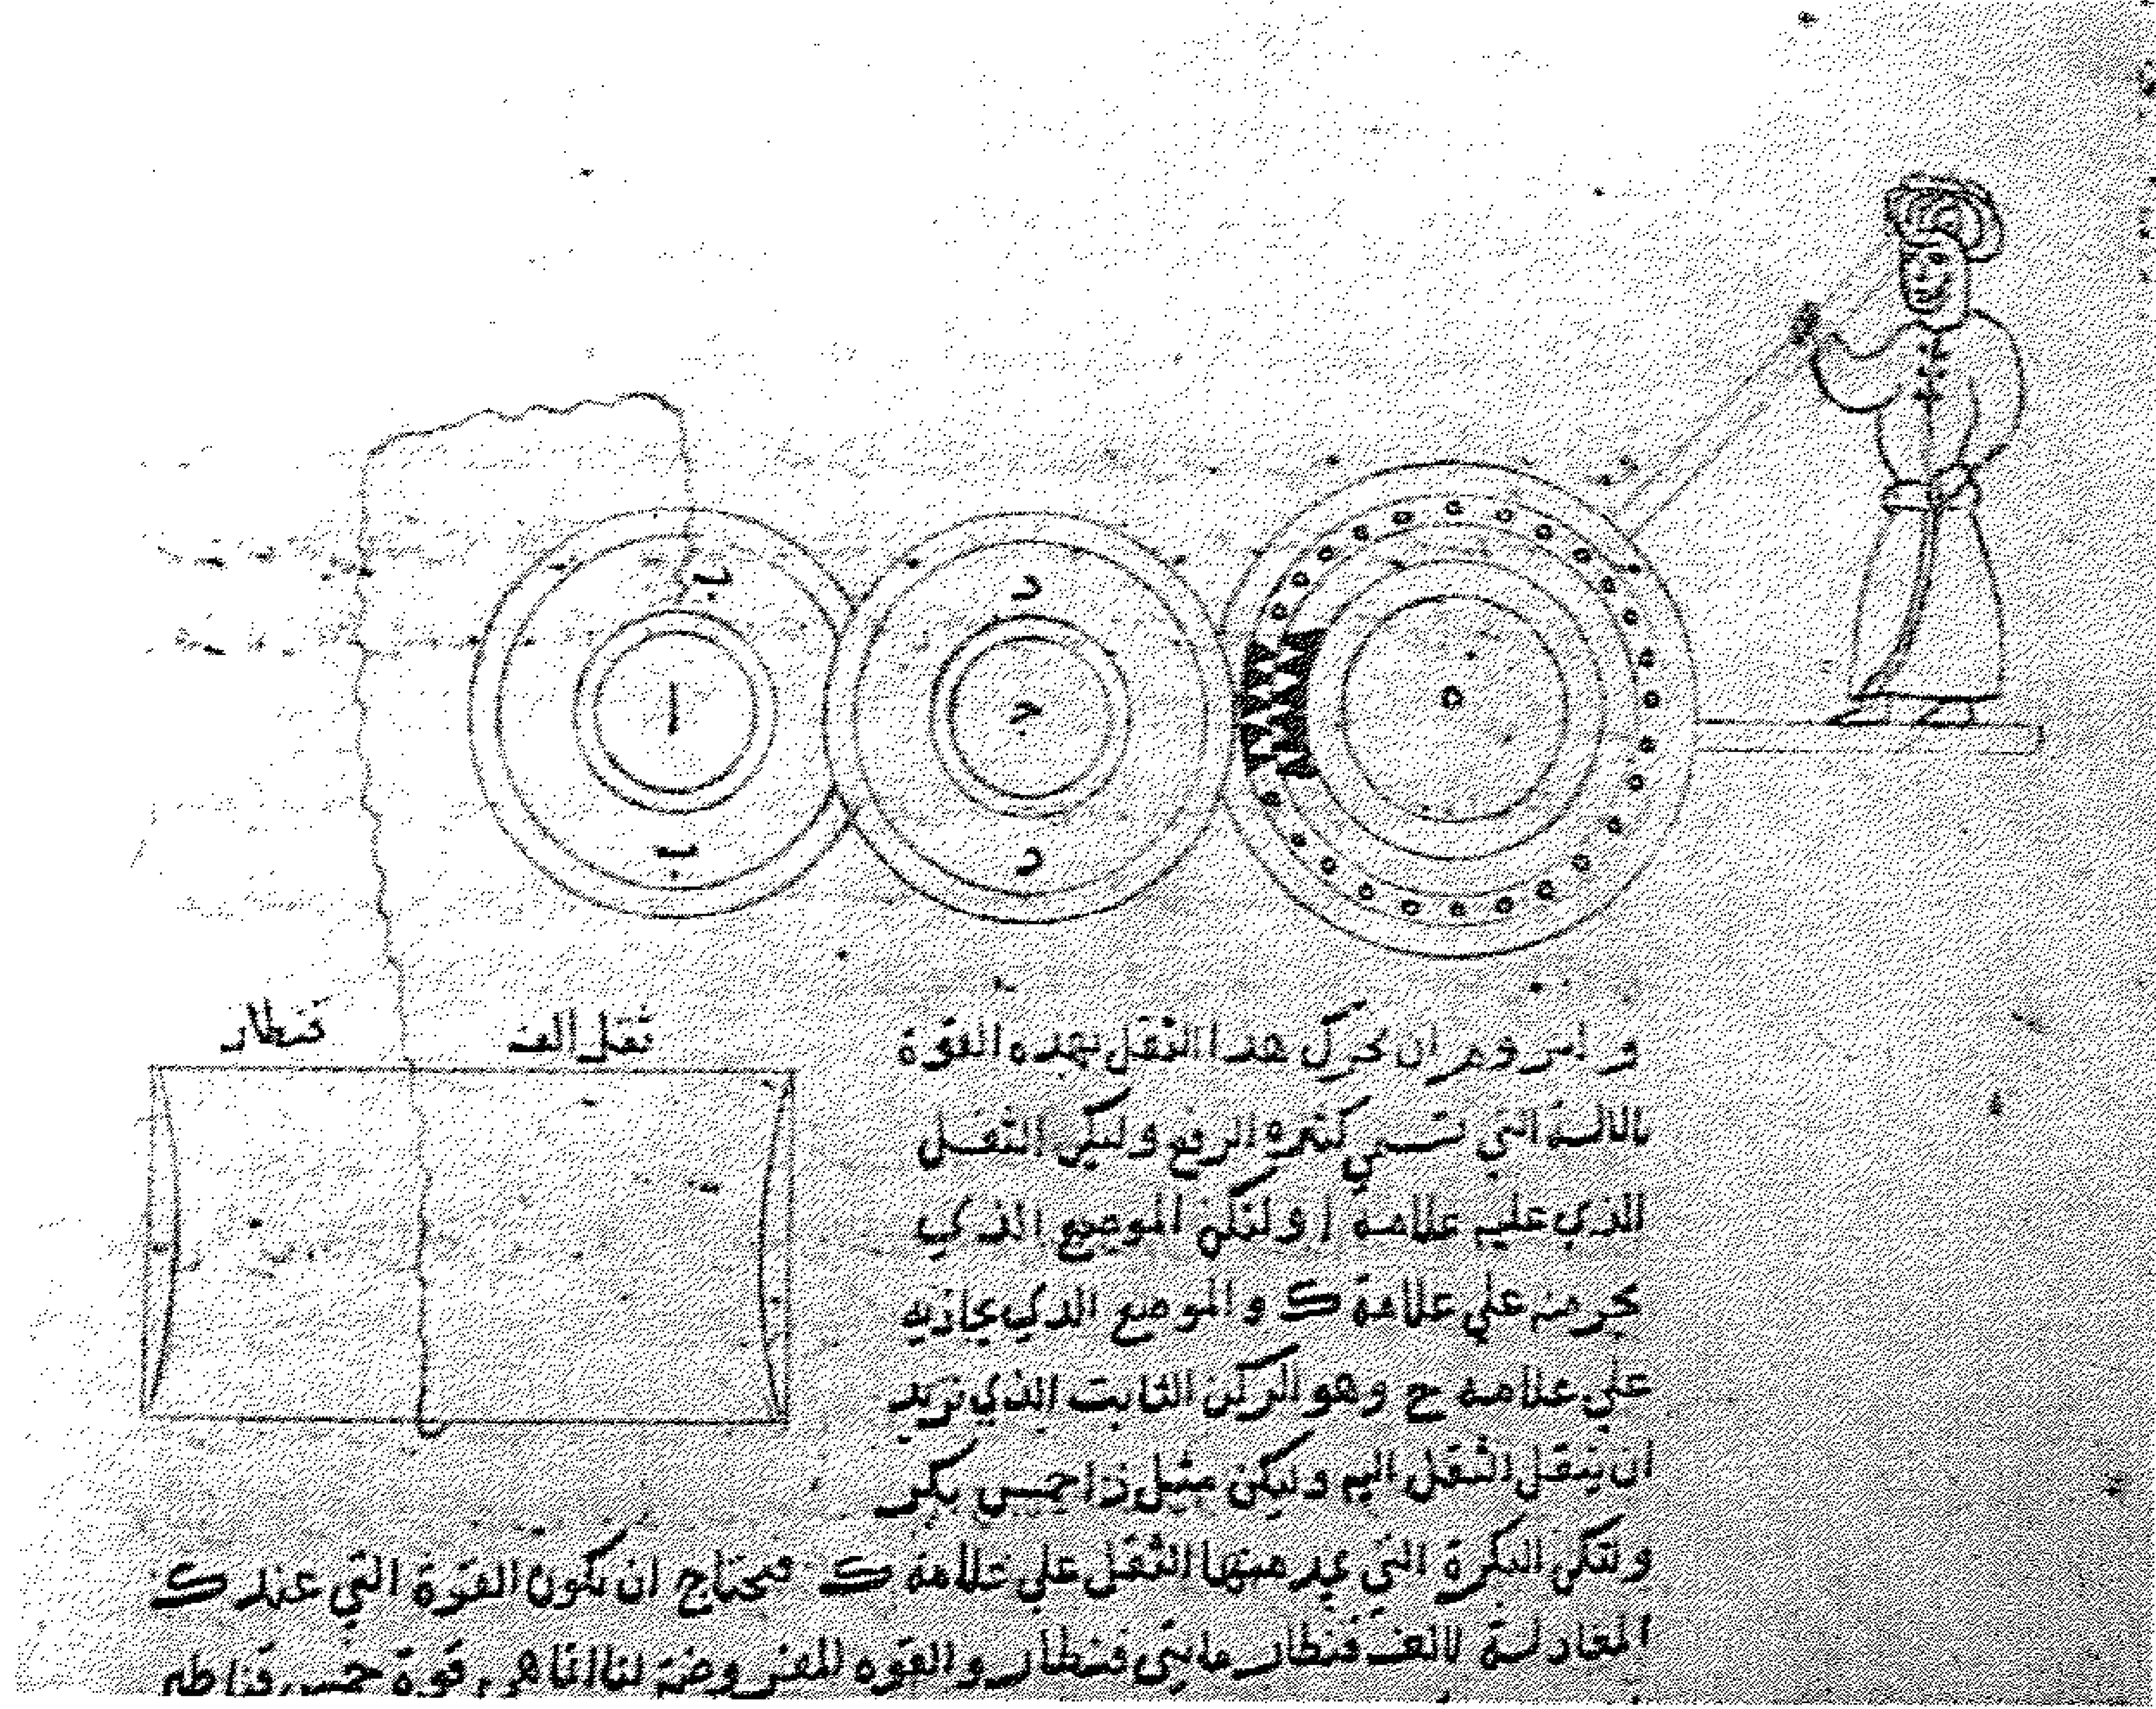 ب
د
ا
ج
ه
ب
د
ثقل الف قنطار
و ان نحرك هذا الثقل بهذه القوة
بالالة التي تسمي كثيره الرفع وليكن الثقل
الذي عليه علامة ا ولتكن الموضع الذي
يجر منه علي علامة ك والموضع الذي يحاذيه
علي علامة ح وهو الركن الثابت الذي نريد
ان ينقل الثقل اليه وليكن مثل ذا خمس بكر
ولتكن البكرة التي يمد منها الثقل علي علامة ك فيحتاج ان يكون القوة التي عند ك
المعادلة لالف قنطار مايتي قنطار والقوه المفروضة لنا انما هي قوة خمس قناطير